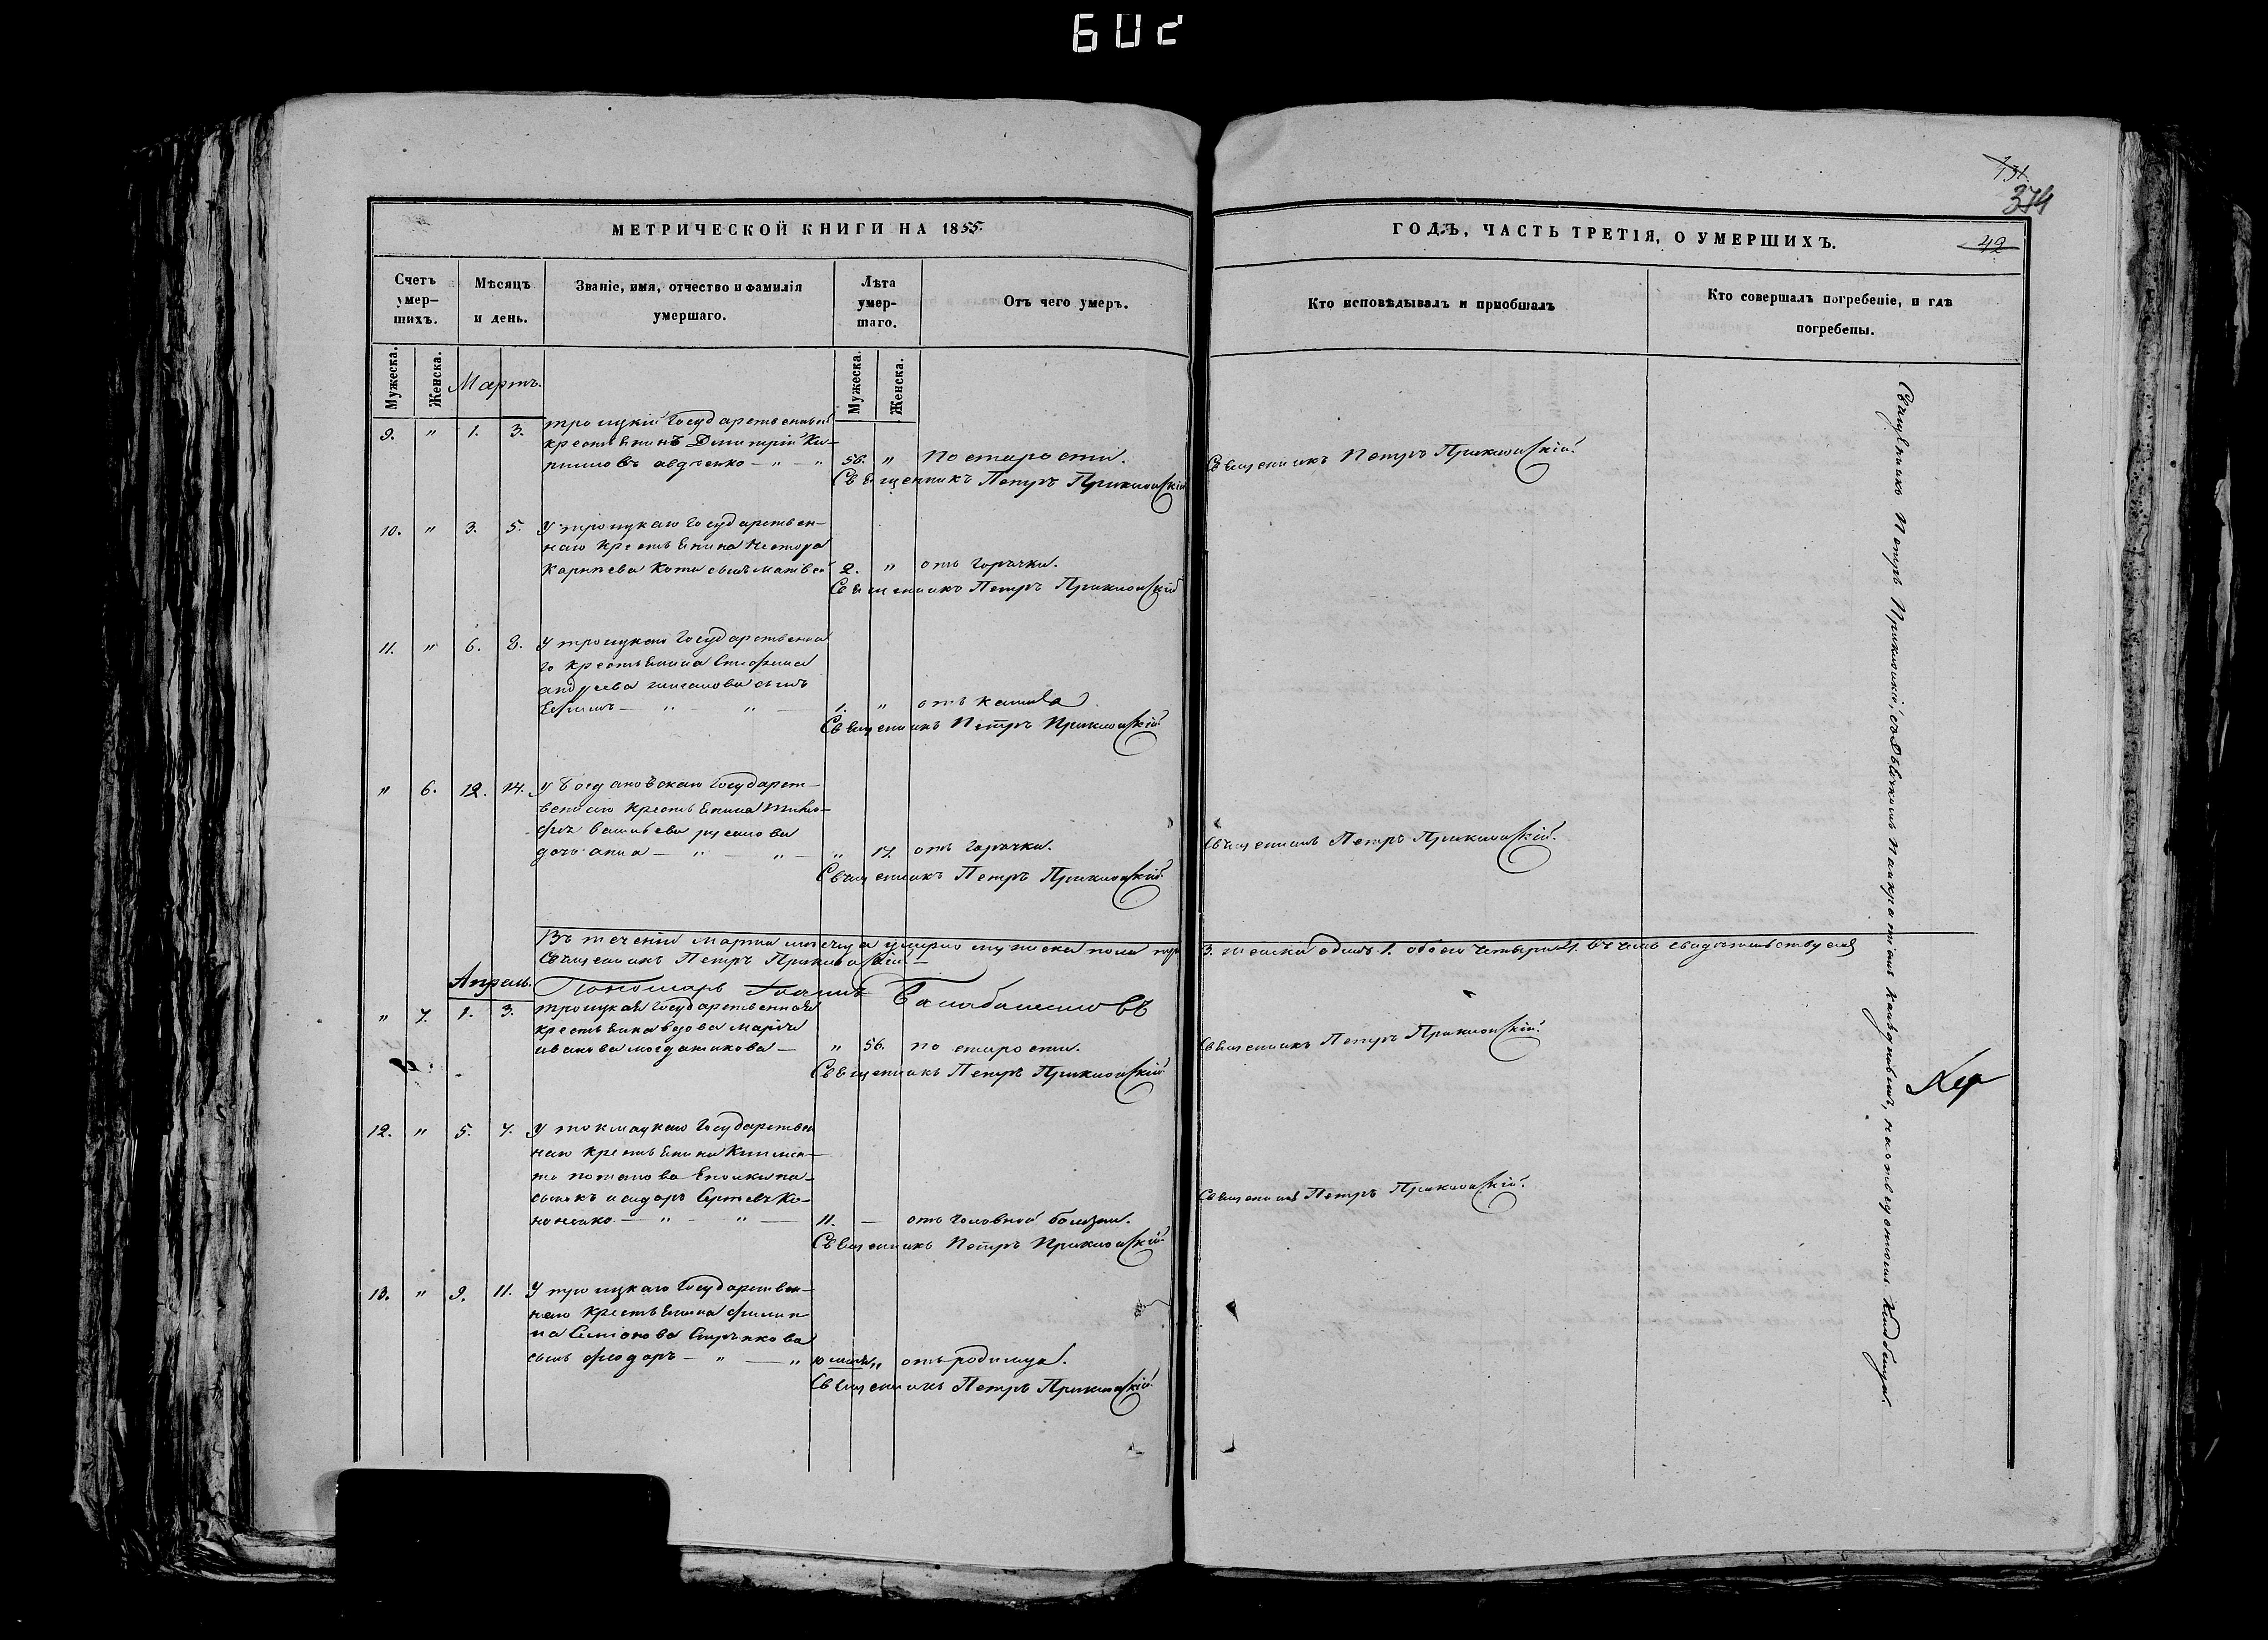 602
131
374
МЕТРИЧЕСКОЙ КНИГИ НА 1855.
ГОДЪ, ЧАСТЬ ТРЕТІЯ, О УМЕРШИХЪ.
42
Счетъ умер- шихъ.
Мѣсяцъ и день.
Званіе, имя, отчество и фамилія умершаго.
Лѣта умер- шаго.
Отъ чего умеръ.
Кто исповѣдывалъ и пріобщалъ
Кто совершалъ погребеніе, и гдѣ погребены.
Мужеска.
Женска.
Мужеска.
Женска.
Мартъ.
троицкій Государственный
9. " 1. 3. крестьенинъ Дмитрій Ки-
рилловъ авдѣенко — " — " 56. " По старости. Священникъ Петръ Приклонскій.
Священникъ Петръ Приклонскій
10. " 3. 5. У троицкаго Государствен-
наго крестьенина Нестора
Карпѣева Кота сынъ матвей 2. " отъ горячки.
Священникъ Петръ Приклонскій
11. " 6. 8. У троицкаго Государственна
го крестьенина Стефана
андреева сынъ
Ефимъ — " " — 1. " отъ кашля
Священникъ Петръ Приклонскій
" 6. 12. 14. У Богдановскаго Государст-
веннаго крестьенина
васильева
дочь анна — " — " — " 17. отъ горячки. Священникъ Петръ Приклонскій.
Священникъ Петръ Приклонскій
Въ теченіи марта месеца умерло мужеска пола три 3. женска одинъ 1. обоего четыри 4. въ чемъ свидѣтельствуемъ
Священникъ Петръ Приклонскій
Апрель. Пономарь Балабашновъ
" 7. 1. 3. троицкая Государственная
крестьенка вдова Марія
иванова — " 56. по старости. Священникъ Петръ Приклонскій.
Священникъ Петръ Приклонскій
12. " 5. 7. У токмацкаго Государствен
наго крестьенина Климен-
та потапова
сынъ исидоръ Сергѣевъ Ко-
ноненко — " " — 11. — отъ головной болезни. Священникъ Петръ Приклонскій.
Священникъ Петръ Приклонскій
13. " 9. 11. У троицкаго Государствен-
наго крестьенина филип
па Симонова
сынъ феодоръ — " — " " отъ родимца.
Священникъ Петръ Приклонскій.
Священникъ Петръ Приклонскій, съ Дьячкомъ